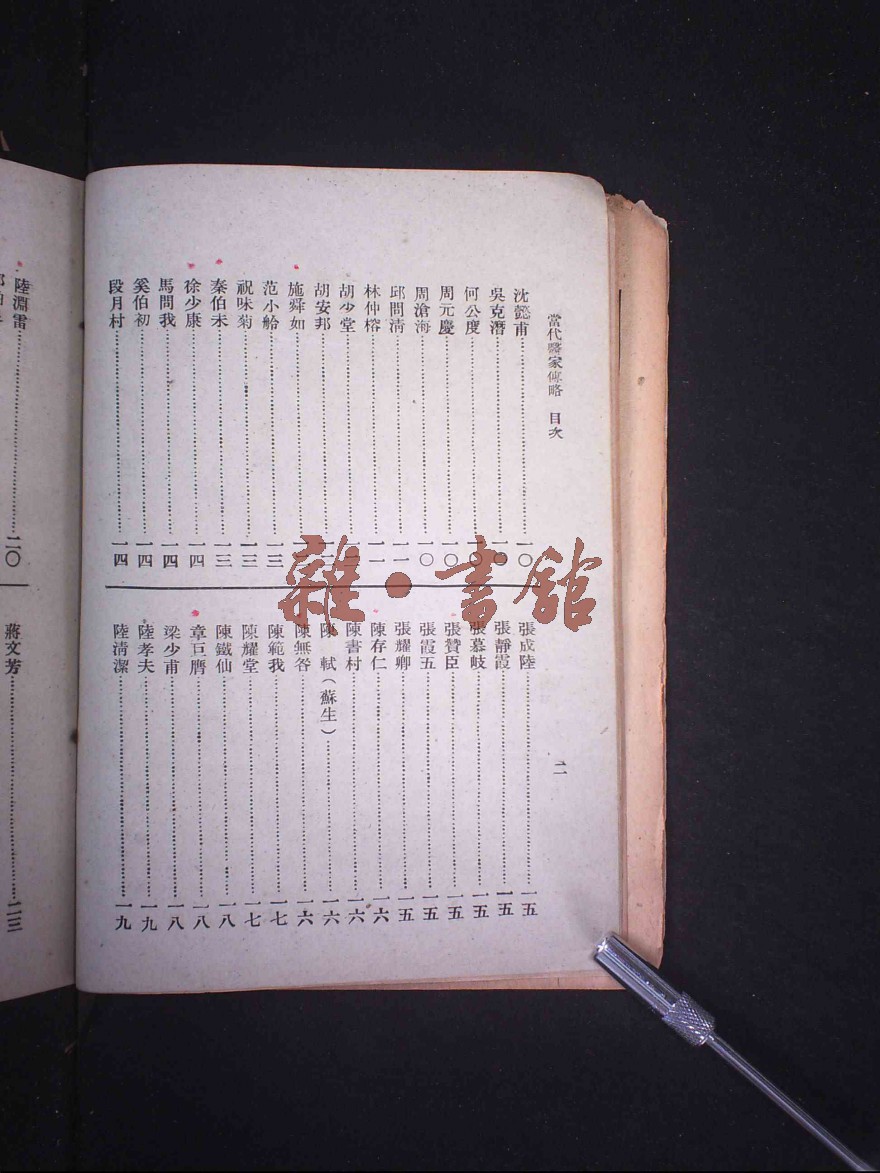 當代醫家傳略　目次
沈懿甫……一〇
吳克潛……一〇
何公度……一〇
周元慶……一〇
周滄海……一〇
邱問清……一一
林仲榕……一一
胡少堂
胡安邦
施舜如
范小舲……一三
祝味菊……一三
秦伯未……一三
徐少康……一四
馬問我……一四
奚伯初……一四
段月村……一四
張成陸……一五
張靜霞……一五
張慕岐……一五
張贊臣……一五
張霞五……一五
張耀卿……一五
陳存仁……一六
陳書村……一六
陳　軾（蘇生）……一六
陳無咎……一六
陳範我……一七
陳耀堂……一七
陳鐵仙……一八
章巨膺……一八
梁少甫……一八
陸孝夫……一九
陸清潔……一九
二
陸淵雷……二〇
蔣文芳……二三
雜·書館